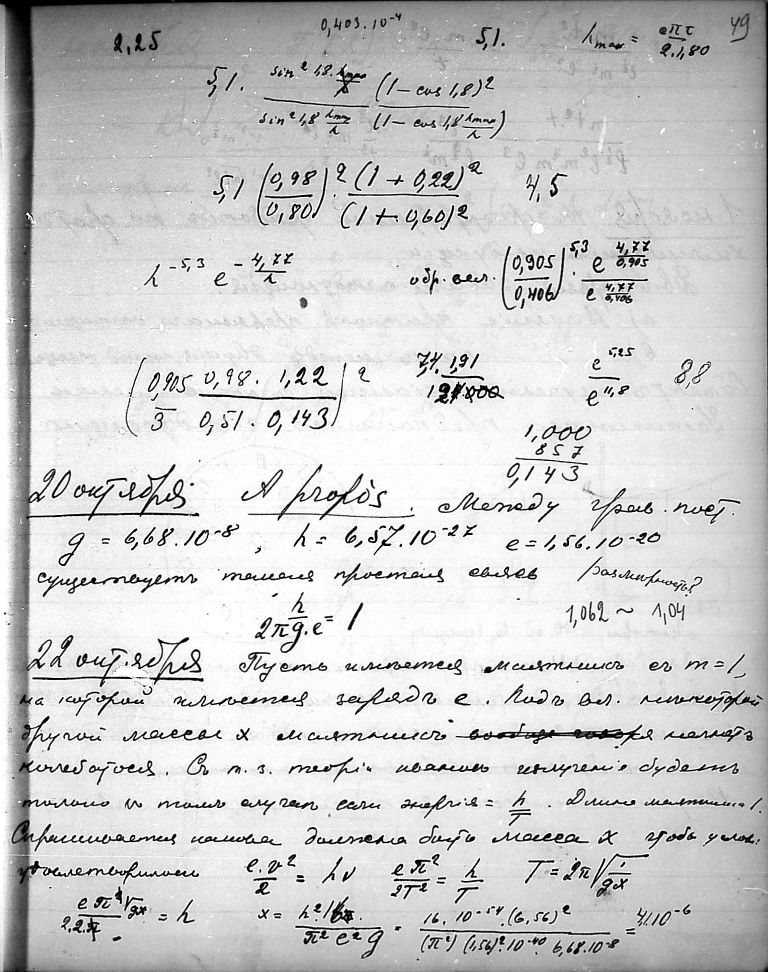 0,403.10⁻⁴ 49
2,25 5,1. h_max = eπτ / 2.1,80
5,1. sin² 1,8. h_max (1 – cos 1,8)² / sin² 1,8 h_max/λ (1 – cos 1,8 h_max/λ)
5,1 (0,98 / 0,80)² (1 + 0,22)² / (1 + 0,60)² 4,5
λ^–5,3 e^–4,77/λ обр. вел. (0,905 / 0,406)^5,3 e^4,77/0,905 / e^4,77/0,406
(0,905 / 3 0,98 . 1,22 / 0,51 . 0,143)² 74. 1,91 e^5,25 / e^11,8 8,8
1,000
857
0,143
20 октября A propos. Между грав. пост.
g = 6,68.10⁻⁸, h = 6,57.10⁻²⁷ e = 1,56.10⁻²⁰
существуетъ простая связь размѣрность?
h / 2πg.e = 1 1,062 ~ 1,04
22 октября Пусть имѣется маятникъ съ m = 1,
на которой имѣется зарядъ e. Подъ вл. нѣкоторой
другой массы x маятникъ вообще говоря начнетъ
колебаться. Съ т. з. теоріи излученіе будетъ
только въ томъ случаѣ если энергія = h/T. Длина маятника 1.
Спрашивается какова должна быть масса x чтобы услов.
удовлетворялось e.v² / 2 = hν eπ² / 2T² = h / T T = 2π √1/gx
eπ² √gx / 2.2.π = h x = h² 16. / π² e² g = 16. 10⁻⁵⁴ .(6,56)² / (π²) (1,56)².10⁻⁴⁰ . 6,68.10⁻⁸ = 4,1.10⁻⁶